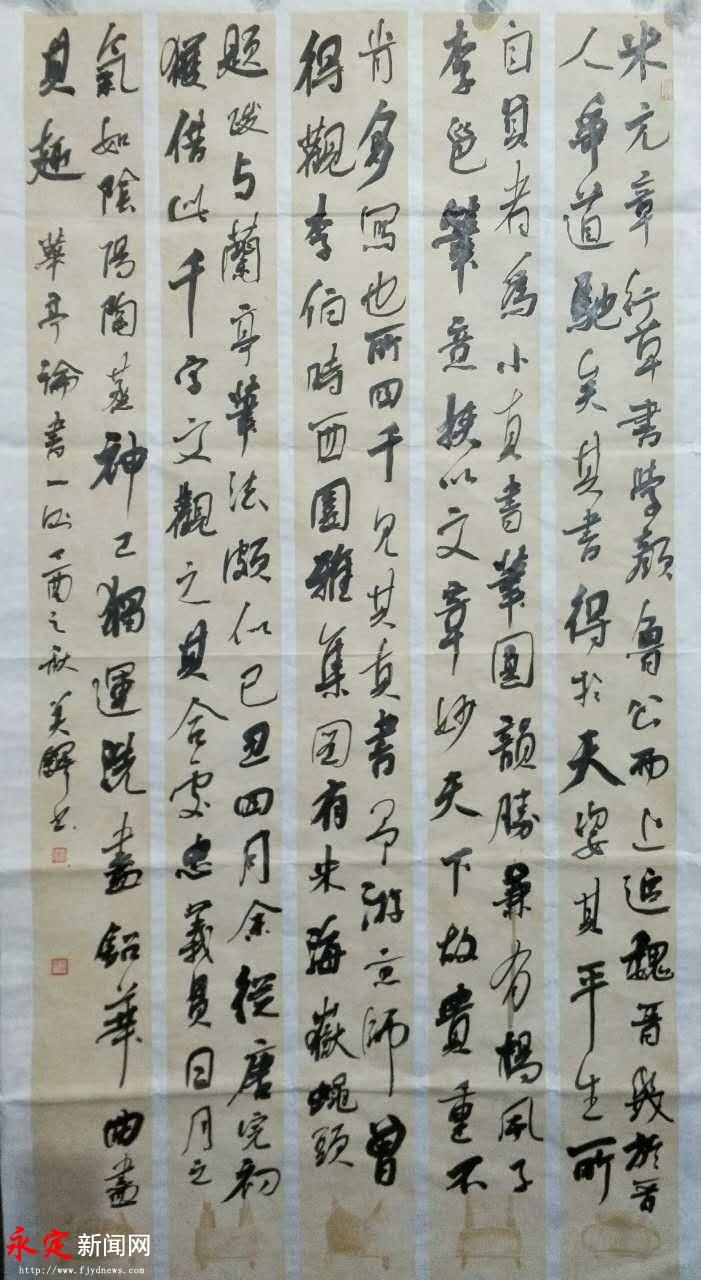 米元章行草書學顏魯公而上追魏晉於晉
人爭道馳矣其書得於天姿其平生所
自其者為小真書筆圓韻勝兼有楊風子
李邕筆意挾以文章妙天下故貴重不
肯多寫也所四千見其真書予游京師曾
得觀李伯時西園雅集圖有米海嶽蠅頭
題跋與蘭亭筆法頗似己丑四月余從唐完初
獲借此千字文觀之其合處忠義貫日月之
氣如陰陽陶蒸神工獨運洗盡鉛華曲盡
其趣 華亭論書一則丁酉之秋美輝书
永定新闻网
http://www.fjydnews.com/